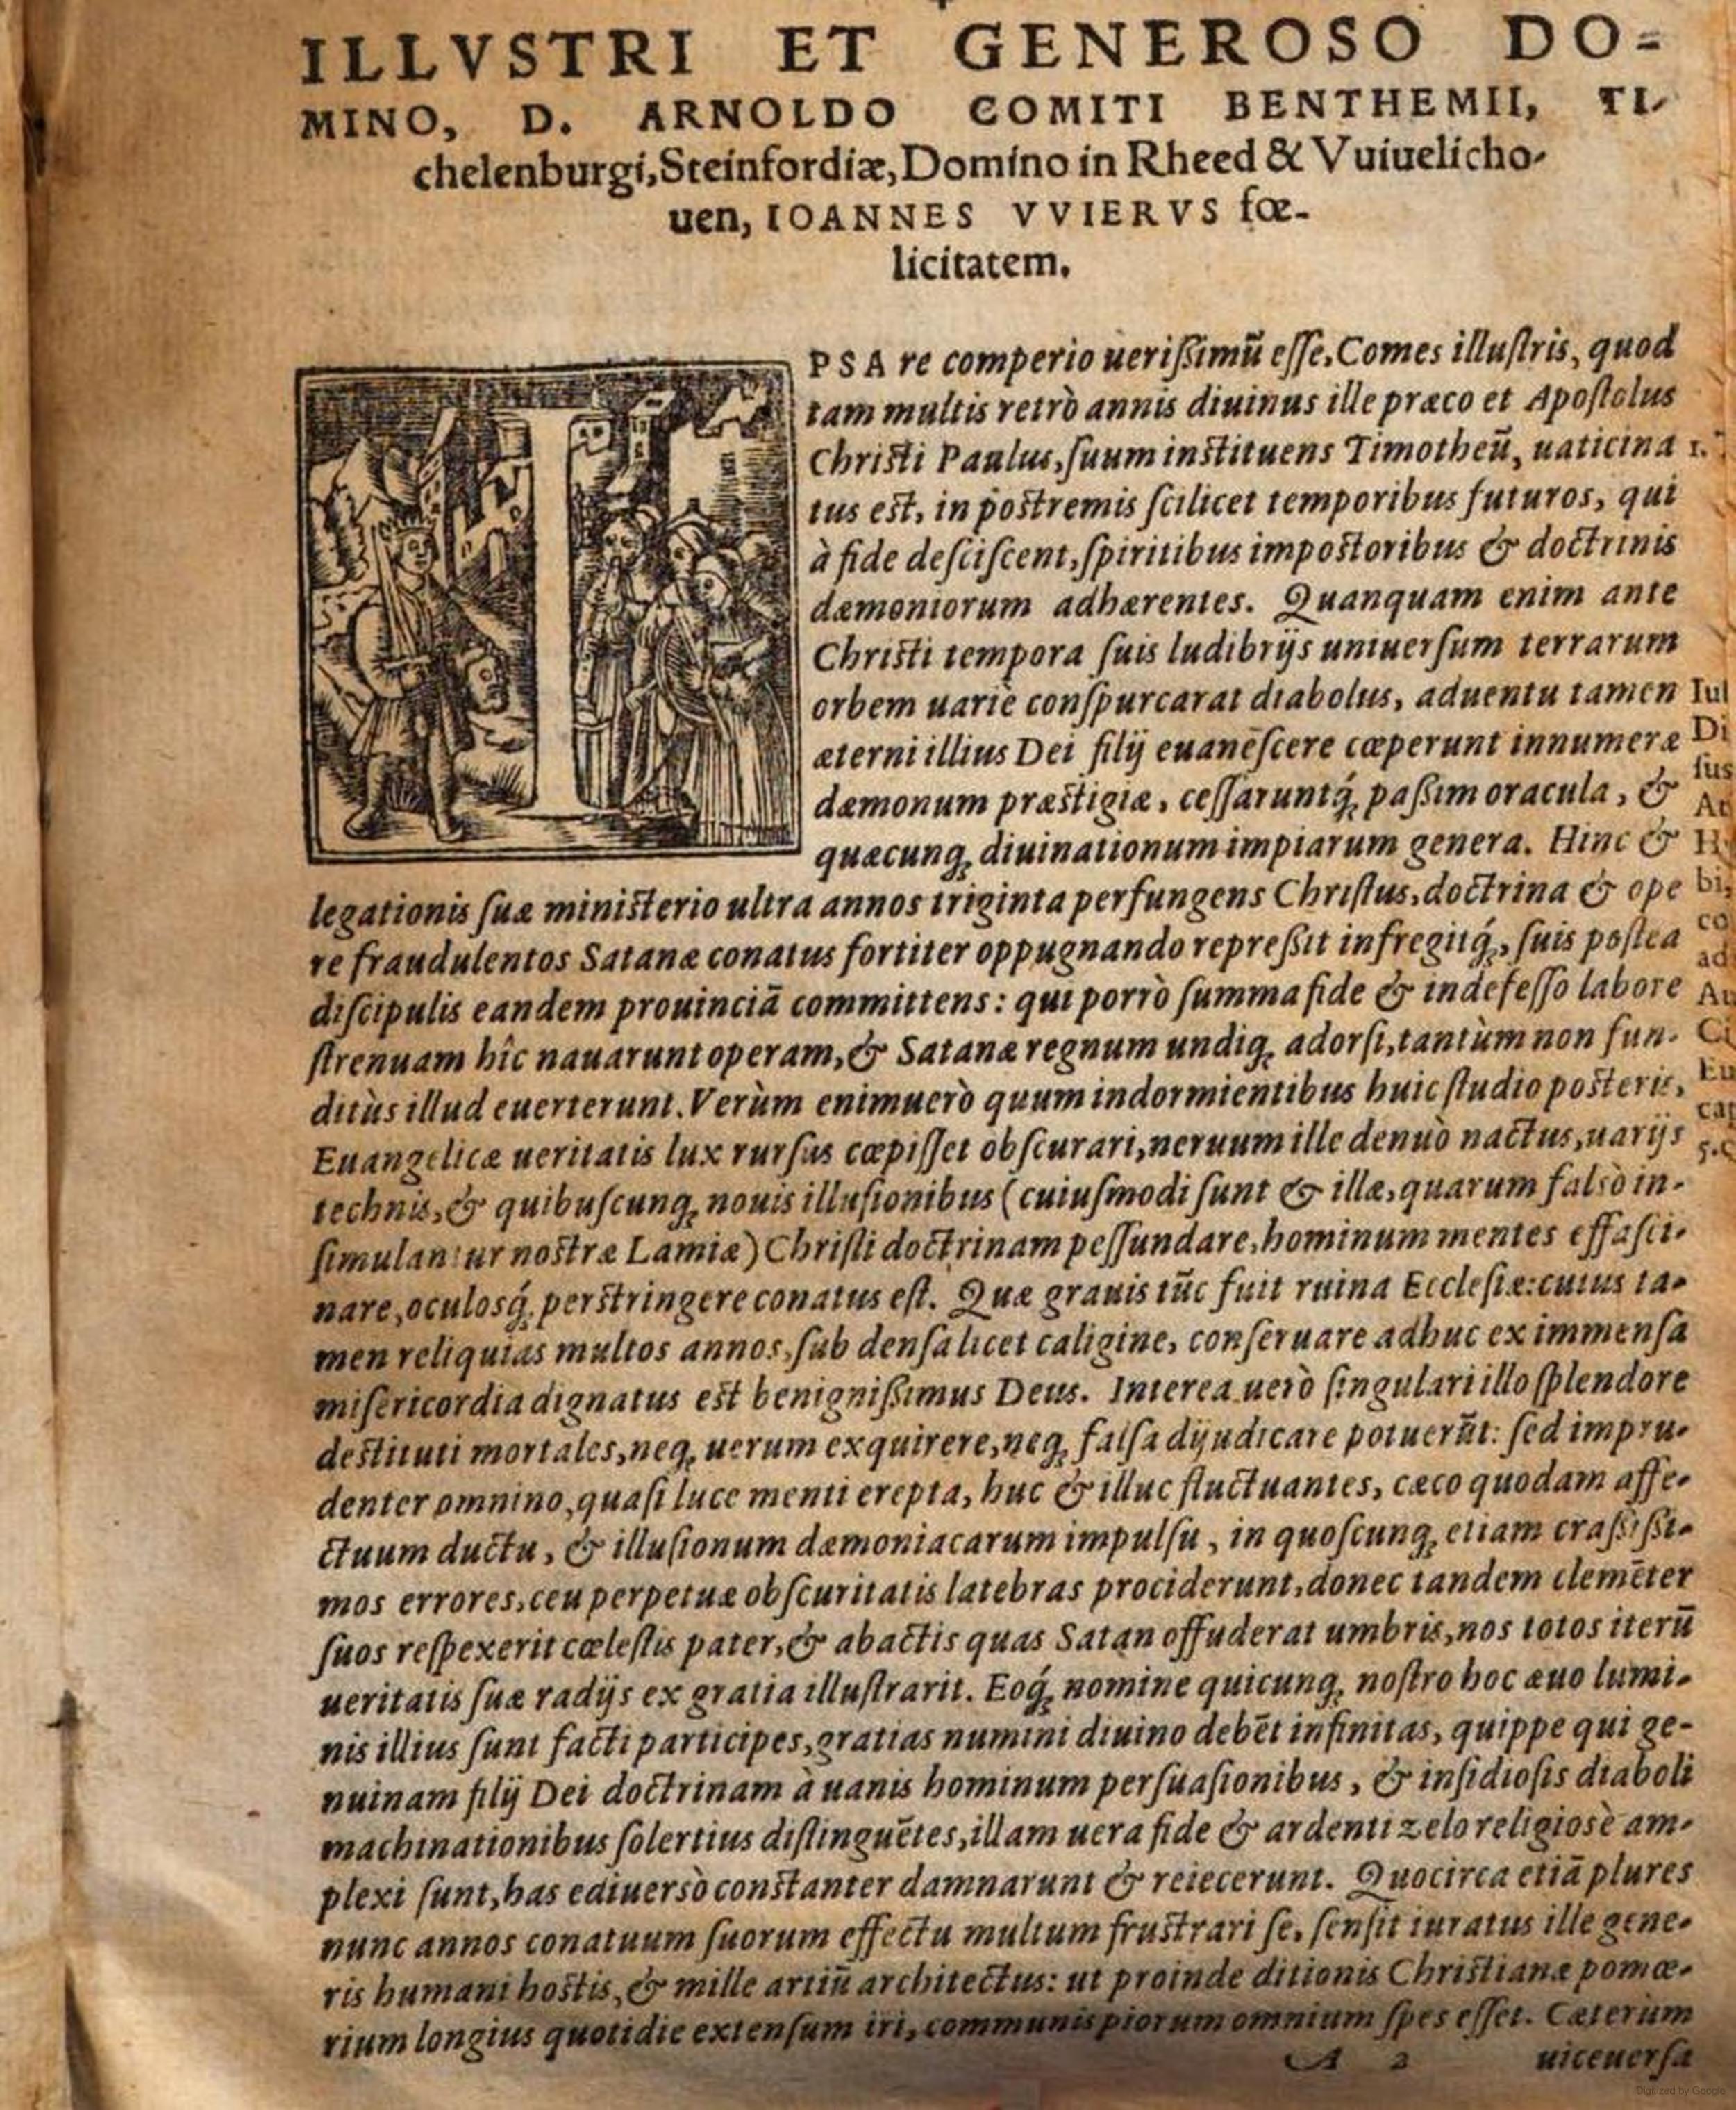 ILLVSTRI ET GENEROSO DO=
MINO, D. ARNOLDO COMITI BENTHEMII, TI-
chelenburgi, Steinfordiæ, Domino in Rheed & Vuiuelicho-
uen, IOANNES VVIERVS fœ-
licitatem.
IPSA re comperio uerißimū eſſe, Comes illuſtris, quod
tam multis retrò annis diuinus ille præco et Apoſtolus
Chriſti Paulus, ſuum inſtituens Timotheū, uaticina
tus eſt, in poſtremis ſcilicet temporibus futuros, qui
à fide deſciſcent, ſpiritibus impoſtoribus & doctrinis
dæmoniorum adhærentes. Quanquam enim ante
Chriſti tempora ſuis ludibrijs uniuerſum terrarum
orbem uariè conſpurcarat diabolus, aduentu tamen
æterni illius Dei filij euaneſcere cœperunt innumeræ
dæmonum præſtigiæ, ceſſaruntq́; paßim oracula, &
quæcunq; diuinationum impiarum genera. Hinc &
legationis ſuæ miniſterio ultra annos triginta perfungens Chriſtus, doctrina & ope
re fraudulentos Satanæ conatus fortiter oppugnando repreßit infregitq́;, ſuis poſtea
diſcipulis eandem prouinciā committens: qui porrò ſumma fide & indefeſſo labore
ſtrenuam hîc nauarunt operam, & Satanæ regnum undiq; adorſi, tantùm non fun-
ditùs illud euerterunt. Verùm enimuerò quum indormientibus huic ſtudio poſteris,
Euangelicæ ueritatis lux rurſus cœpiſſet obſcurari, neruum ille denuò nactus, uarijs
technis, & quibuſcunq; nouis illuſionibus (cuiuſmodi ſunt & illæ, quarum falsò in-
ſimulantur noſtræ Lamiæ) Chriſti doctrinam peſſundare, hominum mentes effaſci-
nare, oculosq́; perſtringere conatus eſt. Quæ grauis tūc fuit ruina Eccleſiæ: cuius ta-
men reliquias multos annos, ſub denſa licet caligine, conſeruare adhuc ex immenſa
miſericordia dignatus eſt benignißimus Deus. Interea uerò ſingulari illo ſplendore
deſtituti mortales, neq; uerum exquirere, neq; falſa dijudicare potuerūt: ſed impru-
denter omnino, quaſi luce menti erepta, huc & illuc fluctuantes, cæco quodam affe-
ctuum ductu, & illuſionum dæmoniacarum impulſu, in quoſcunq; etiam craßißi-
mos errores, ceu perpetuæ obſcuritatis latebras prociderunt, donec tandem clemēter
ſuos reſpexerit cœleſtis pater, & abactis quas Satan offuderat umbris, nos totos iterū
ueritatis ſuæ radijs ex gratia illuſtrarit. Eoq́; nomine quicunq; noſtro hoc æuo lumi-
nis illius ſunt facti participes, gratias numini diuino debēt infinitas, quippe qui ge-
nuinam filij Dei doctrinam à uanis hominum perſuaſionibus, & inſidioſis diaboli
machinationibus ſolertius diſtinguētes, illam uera fide & ardenti zelo religiosè am-
plexi ſunt, has ediuersò conſtanter damnarunt & reiecerunt. Quocirca etiā plures
nunc annos conatuum ſuorum effectu multum fruſtrari ſe, ſenſit iuratus ille gene-
ris humani hoſtis, & mille artiū architectus: ut proinde ditionis Chriſtianæ pomœ-
rium longius quotidie extenſum iri, communis piorum omnium ſpes eſſet. Cæterùm
A 2 uiceuerſa
1.
Iul
Di
ſus
Ar
bi,
co
ad
Au
Ci
Eu
cap
Digitized by Google